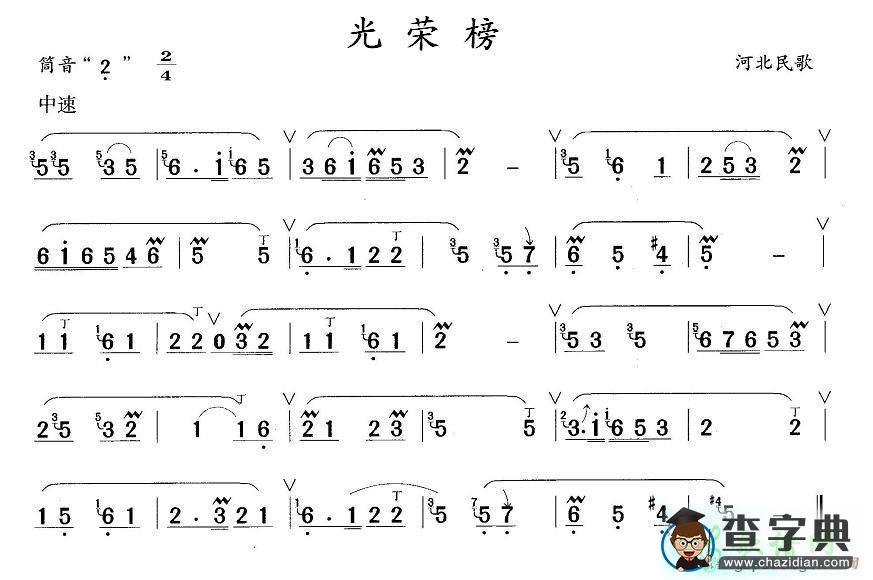 光荣榜
筒音“2” 2/4
河北民歌
中速
35 35 535 | 56 . i i65 | 36i 653 | 2 – | 35 16 1 | 253 2 |
6i6546 | 5 5 | 16 . 122 | 35 357 | 6 5 #4 | 5 – |
11 161 | 220 32 | 11 161 | 2 – | 353 35 | 567653 |
235 532 | 1 16 | 21 23 | 35 5 | 23 . i i653 | 2 2 |
15 161 | 2 . 321 | 16 . 122 | 35 757 | 6 5 #4 | #45 – ‖
查字典
www.chazidian.com